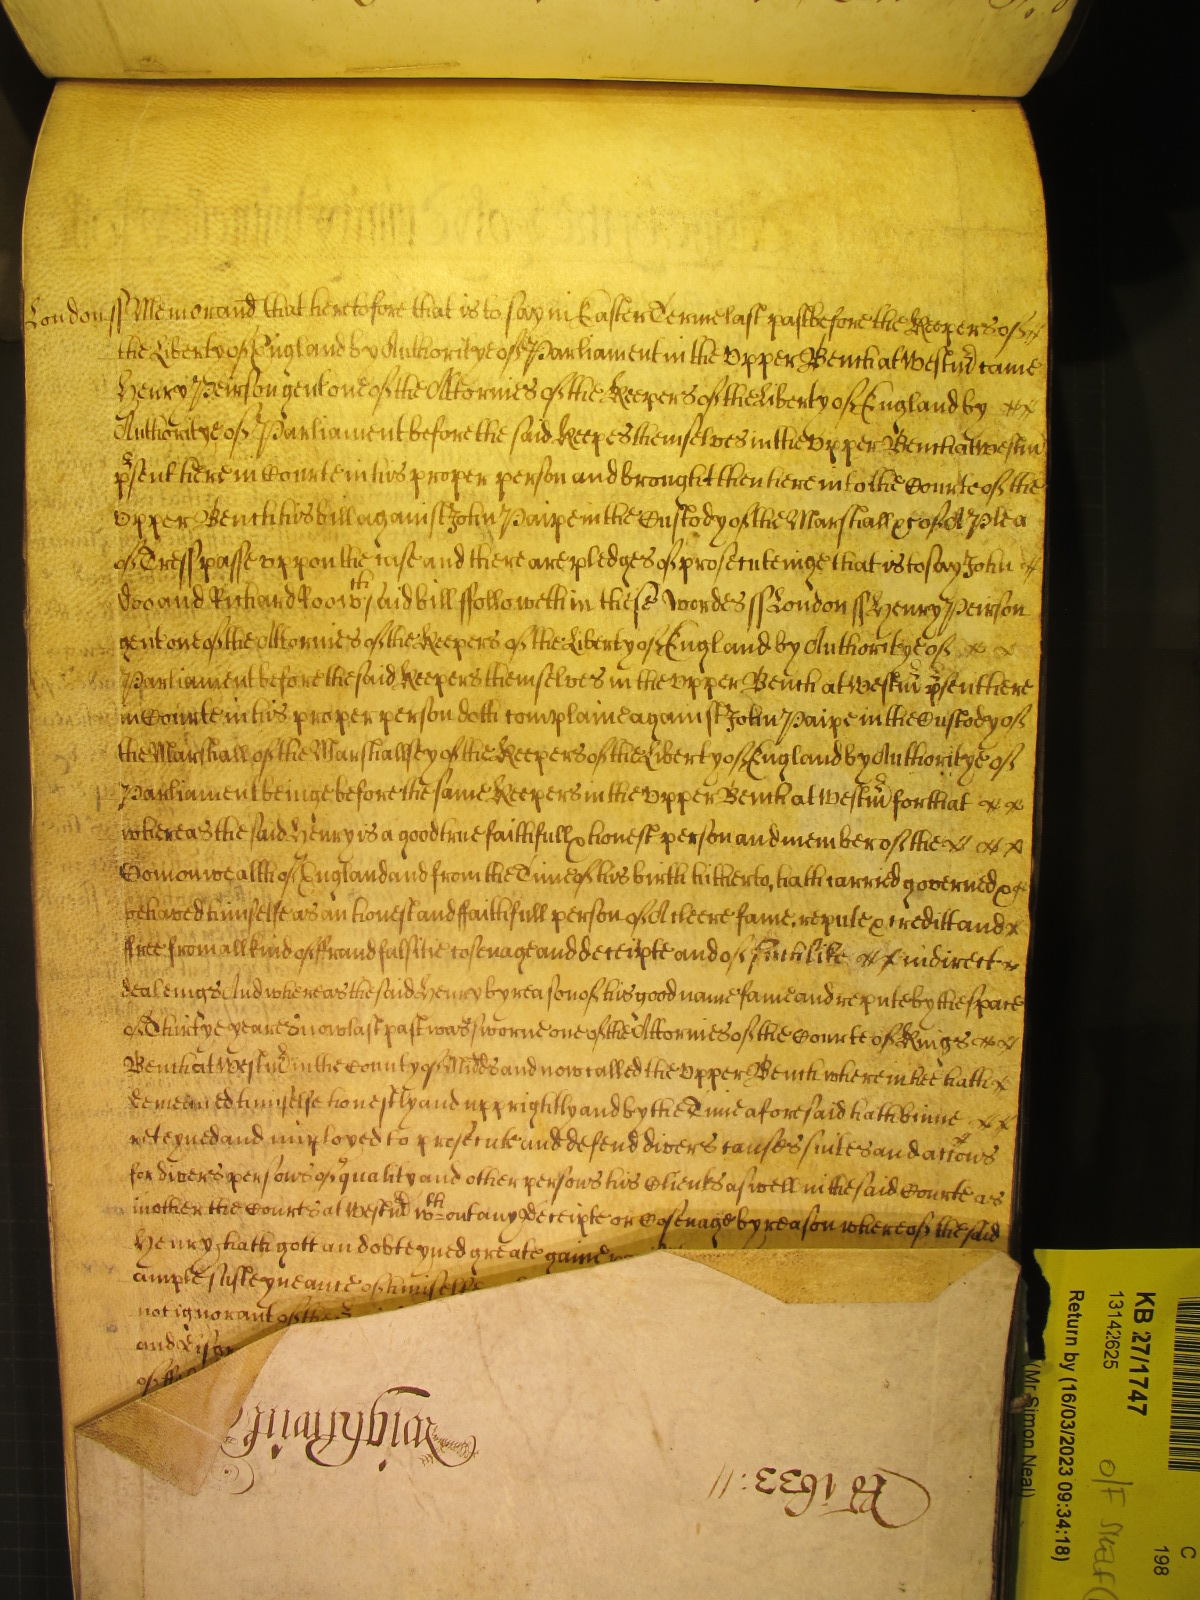 London ss Memorand that heretofore that is to say in Easter Terme last past before the Keepers of
the Liberty of England by Authoritye of Parliament in the Upper Bench at Westm̄ came
Henry Peirson gent one of the Attornies of the Keepers of the Liberty of England by
Authoritye of Parliament before the said Keepes themselves in the Upper Bench at Westm̄
p̄sent here in Courte in his proper person and brought then here into the Courte of the
Upper Bench his bill against John Paipe in the Custody of the Marshall &c of A Plea
of Tresspasse uppon the case and there are pledges of prosecuteinge that is to say John
Doo and Richard Roo wch said bill ffolloweth in these Wordes ss London ss Henry Peirson
gent one of the Attornies of the Keepers of the Liberty of England by Authoritye of
Parliament before the said Keepers themselves in the Upper Bench at Westm̄ p̄sent here
in Courte in his proper person doth complaine against John Paipe in the Custody of
the Marshall of the Marshallsey of the Keepers of the Liberty of England by Authoritye of
Parliament beinge before the same Keepers in the Upper Bench at Westm̄ for that
whereas the said Henry is a good true faithfull & honest person and member of the
Comonwealth of England and from the Time of his birth hitherto, hath carried governed &
behaved himselfe as an honest and ffaithfull person of A cleere fame, repute & creditt and
ffree from all kind of ffraud falsitie cosenage and deceipte and of such like indirect
dealeings And whereas the said Henry by reason of his good name fame and repute by the space
of Thirtye yeares now last past was sworne one of the Attornies of the Courte of Kings
Bench at Westm̄ in the County of Midds and now called the Upper Bench wherein hee hath
demeaned himselfe honestly and upprightly and by the Time aforesaid hath binne
reteyned and imployed to prosecute and defend divers causes suites and actions
for divers persons of quality and other persons his Clients aswell in the said Courte as
in other the Courts at Westm̄ wthout any deceipte or Cosenage by reason whereof the said
Henry hath gott and obteyned greate gaine
ample susteynance of himselfe
not ignorant of the
and
of
Wightwick
Ro 1633
KB 27/1747
13142625
Return by (16/03/2023 09:34:18)
(Mr Simon Neal)
O/F Shelf
C
198